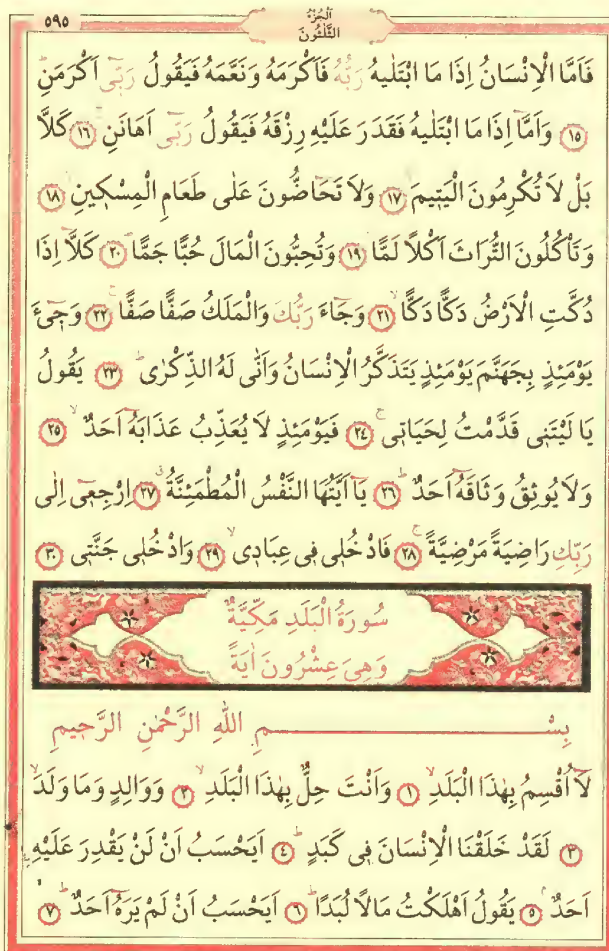 ٥٩٥
اَلْجُزْءُ
الثَّلٰثُونَ
فَاَمَّا الْاِنْسَانُ اِذَا مَا ابْتَلٰيهُ رَبُّهُ فَاَكْرَمَهُ وَنَعَّمَهُ فَيَقُولُ رَبّ۪ٓي اَكْرَمَنِۜ
﴿١٥﴾ وَاَمَّٓا اِذَا مَا ابْتَلٰيهُ فَقَدَرَ عَلَيْهِ رِزْقَهُ فَيَقُولُ رَبّ۪ٓي اَهَانَنِۚ ﴿١٦﴾ كَلَّا
بَلْ لَا تُكْرِمُونَ الْيَت۪يمَۙ ﴿١٧﴾ وَلَا تَحَٓاضُّونَ عَلٰى طَعَامِ الْمِسْك۪ينِۙ ﴿١٨﴾
وَتَأْكُلُونَ التُّرَاثَ اَكْلًا لَمًّاۙ ﴿١٩﴾ وَتُحِبُّونَ الْمَالَ حُبًّا جَمًّاۜ ﴿٢٠﴾ كَلَّٓا اِذَا
دُكَّتِ الْاَرْضُ دَكًّا دَكًّاۙ ﴿٢١﴾ وَجَٓاءَ رَبُّكَ وَالْمَلَكُ صَفًّا صَفًّاۚ ﴿٢٢﴾ وَج۪ٓيءَ
يَوْمَئِذٍ بِجَهَنَّمَ يَوْمَئِذٍ يَتَذَكَّرُ الْاِنْسَانُ وَاَنّٰى لَهُ الذِّكْرٰىۜ ﴿٢٣﴾ يَقُولُ
يَا لَيْتَن۪ي قَدَّمْتُ لِحَيَات۪يۚ ﴿٢٤﴾ فَيَوْمَئِذٍ لَا يُعَذِّبُ عَذَابَهُٓ اَحَدٌۙ ﴿٢٥﴾
وَلَا يُوثِقُ وَثَاقَهُٓ اَحَدٌۜ ﴿٢٦﴾ يَٓا اَيَّتُهَا النَّفْسُ الْمُطْمَئِنَّةُۗ ﴿٢٧﴾ اِرْجِع۪ٓي اِلٰى
رَبِّكِ رَاضِيَةً مَرْضِيَّةًۚ ﴿٢٨﴾ فَادْخُل۪ي ف۪ي عِبَاد۪يۙ ﴿٢٩﴾ وَادْخُل۪ي جَنَّت۪ي ﴿٣٠﴾
سُورَةُ الْبَلَدِ مَكِّيَّةٌ
وَهِيَ عِشْرُونَ اٰيَةً
بِسْــــــــــمِ اللّٰهِ الرَّحْمٰنِ الرَّح۪يمِ
لَٓا اُقْسِمُ بِهٰذَا الْبَلَدِۙ ﴿١﴾ وَاَنْتَ حِلٌّ بِهٰذَا الْبَلَدِۙ ﴿٢﴾ وَوَالِدٍ وَمَا وَلَدَۙ
﴿٣﴾ لَقَدْ خَلَقْنَا الْاِنْسَانَ ف۪ي كَبَدٍۜ ﴿٤﴾ اَيَحْسَبُ اَنْ لَنْ يَقْدِرَ عَلَيْهِ
اَحَدٌۢ ﴿٥﴾ يَقُولُ اَهْلَكْتُ مَالًا لُبَدًاۜ ﴿٦﴾ اَيَحْسَبُ اَنْ لَمْ يَرَهُٓ اَحَدٌۜ ﴿٧﴾